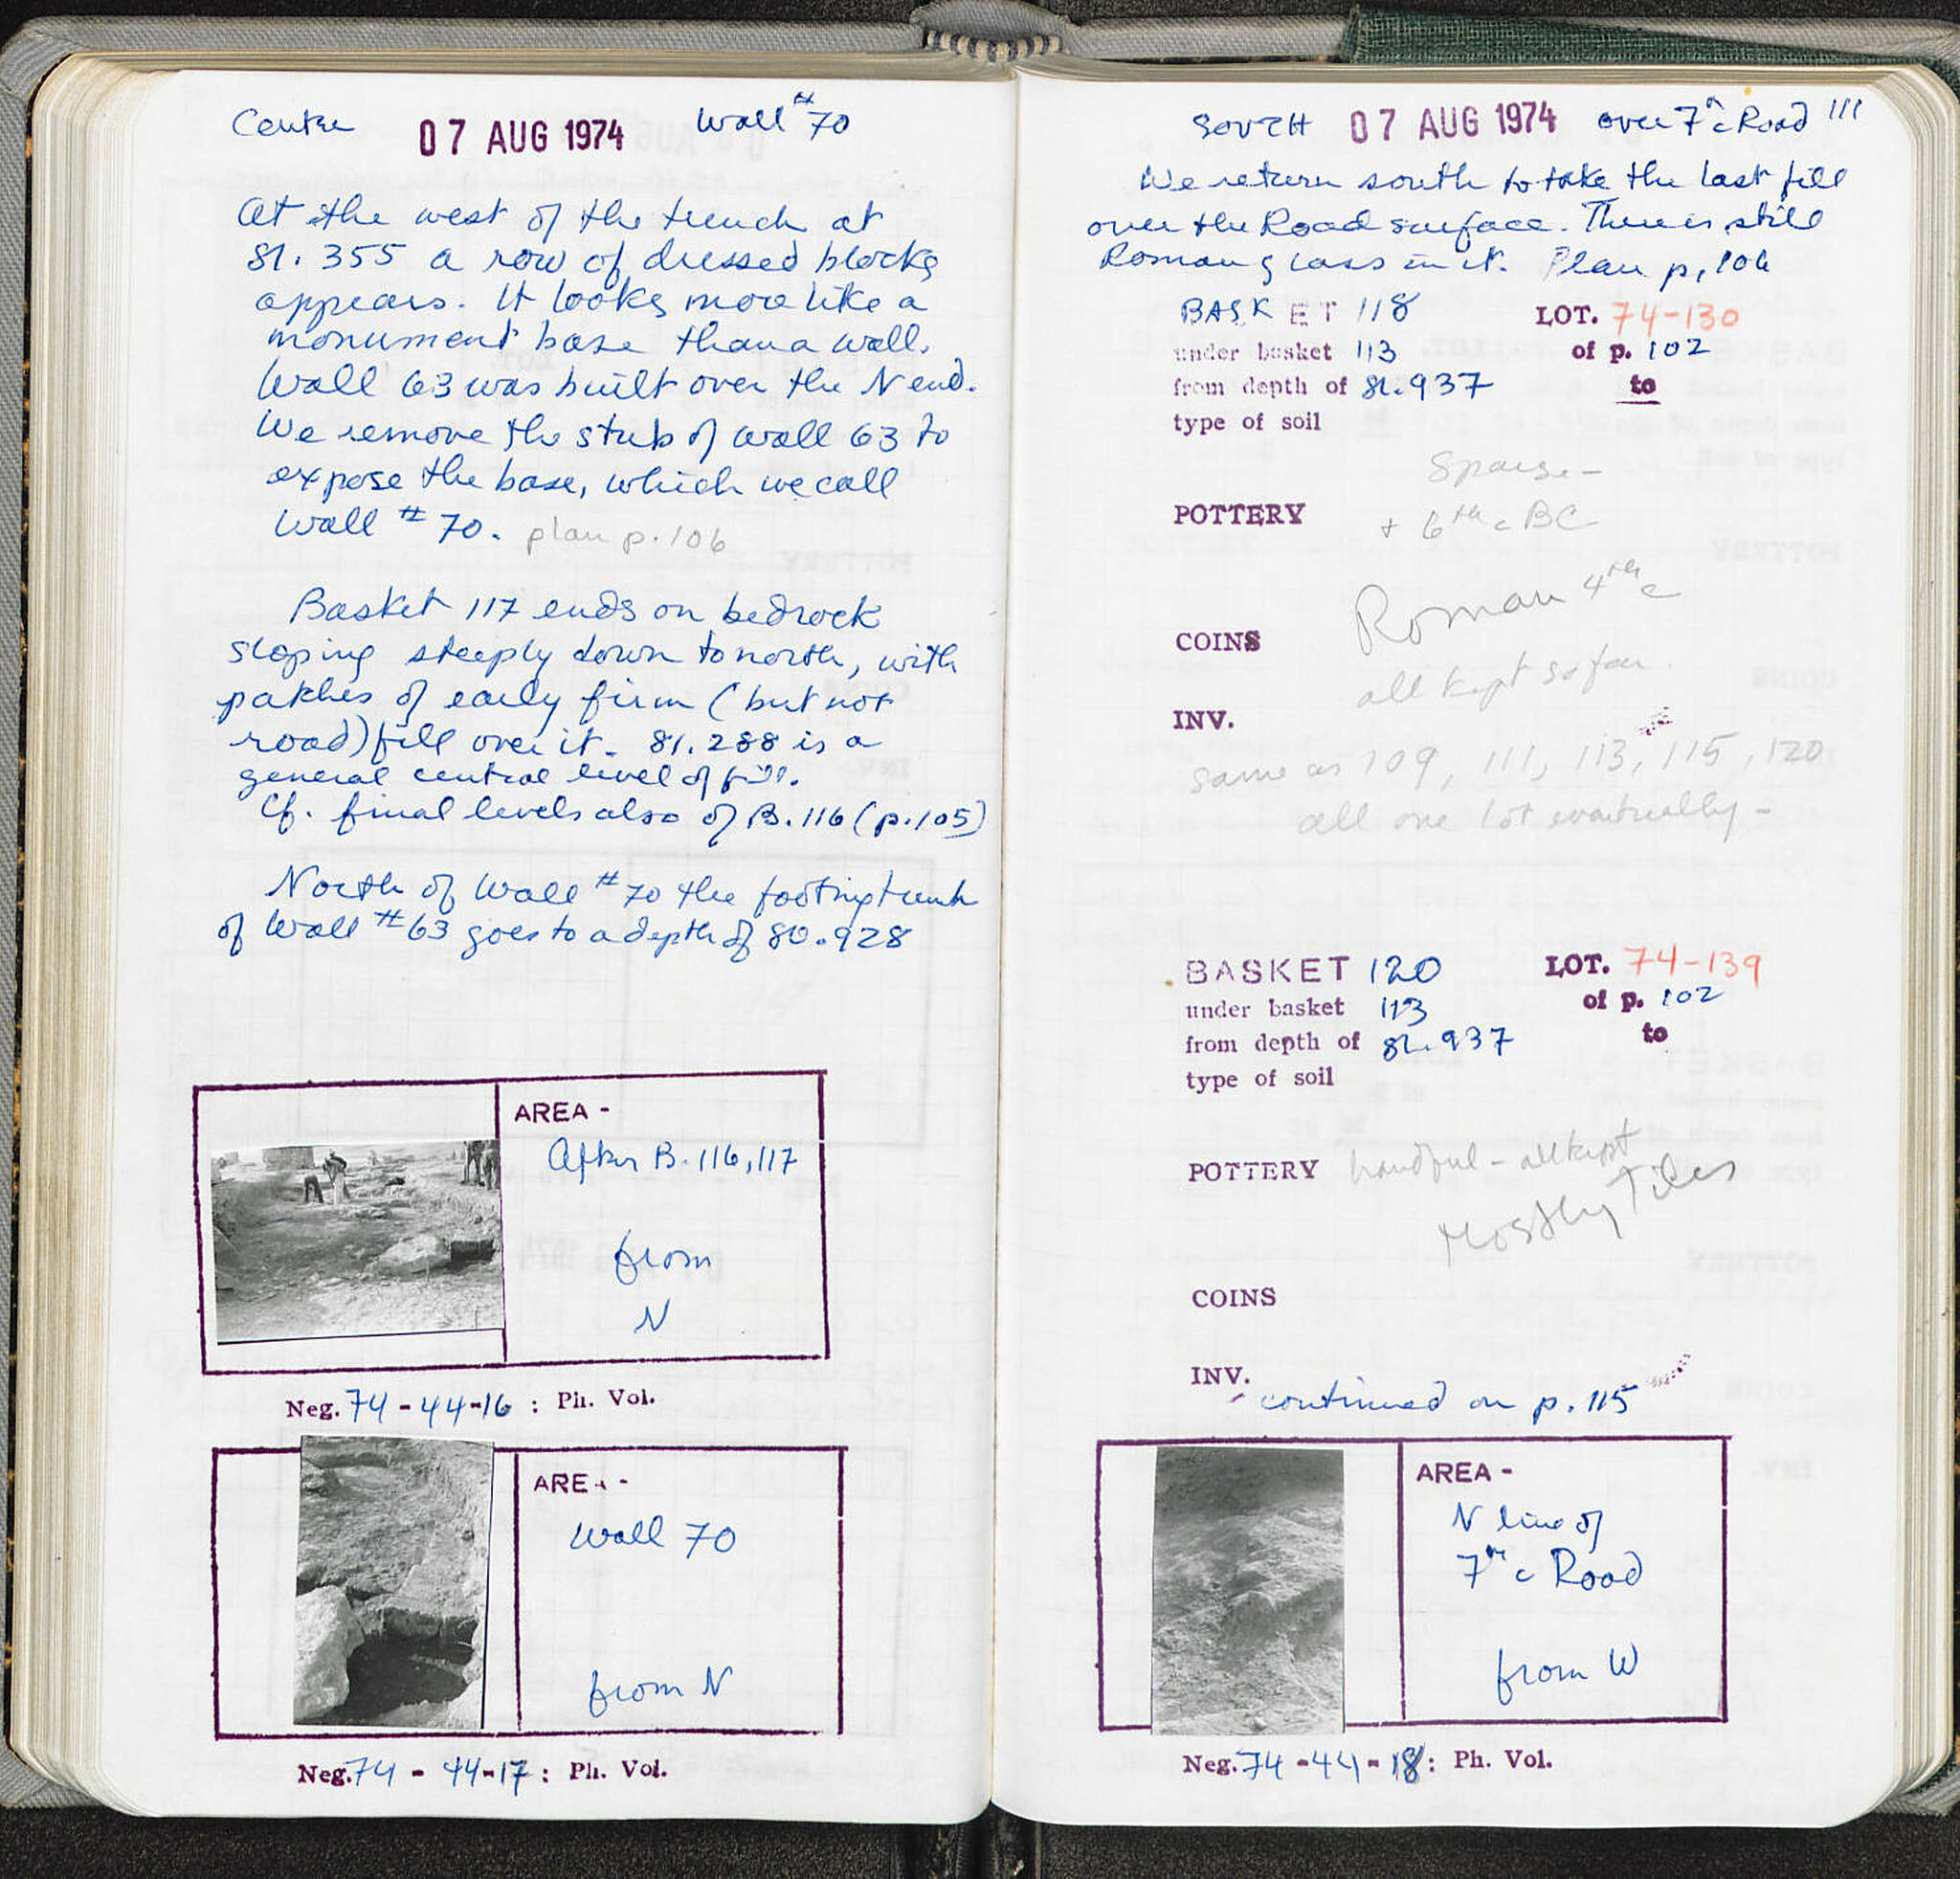 Centre 07 AUG 1974 Wall #70
At the west of the trench at
81.355 a row of dressed blocks
appears. It looks more like a
monument base than a wall.
Wall 63 was built over the N end.
We remove the stub of wall 63 to
expose the base, which we call
Wall #70. plan p.106
Basket 117 ends on bedrock
sloping steeply down to north, with
patches of early firm (but not
road) fill over it. 81.288 is a
general central level of fill.
Cf. final levels also of B.116 (p.105)
North of Wall #70 the footing trench
of Wall #63 goes to a depth of 80.928
AREA -
After B.116,117
from
N
Neg. 74-44-16 : Ph. Vol.
AREA -
Wall 70
from N
Neg. 74-44-17 : Ph. Vol.
SOUTH 07 AUG 1974 over 7th c Road 111
We return south to take the last fill
over the Road surface. There is still
Roman glass in it. Plan p.106
BASKET 118 LOT. 74-130
under basket 113 of p. 102
from depth of 81.937 to
type of soil
Sparse -
POTTERY + 6th c BC
Roman 4th c
COINS
all kept so far.
INV.
same as 109, 111, 113, 115, 120
all one lot eventually -
BASKET 120 LOT. 74-139
under basket 113 of p. 102
from depth of 81.937 to
type of soil
POTTERY handful - all kept
Mostly Tiles
COINS
INV.
continued on p. 115
AREA -
N line of
7th c Road
from W
Neg. 74-44-18 : Ph. Vol.